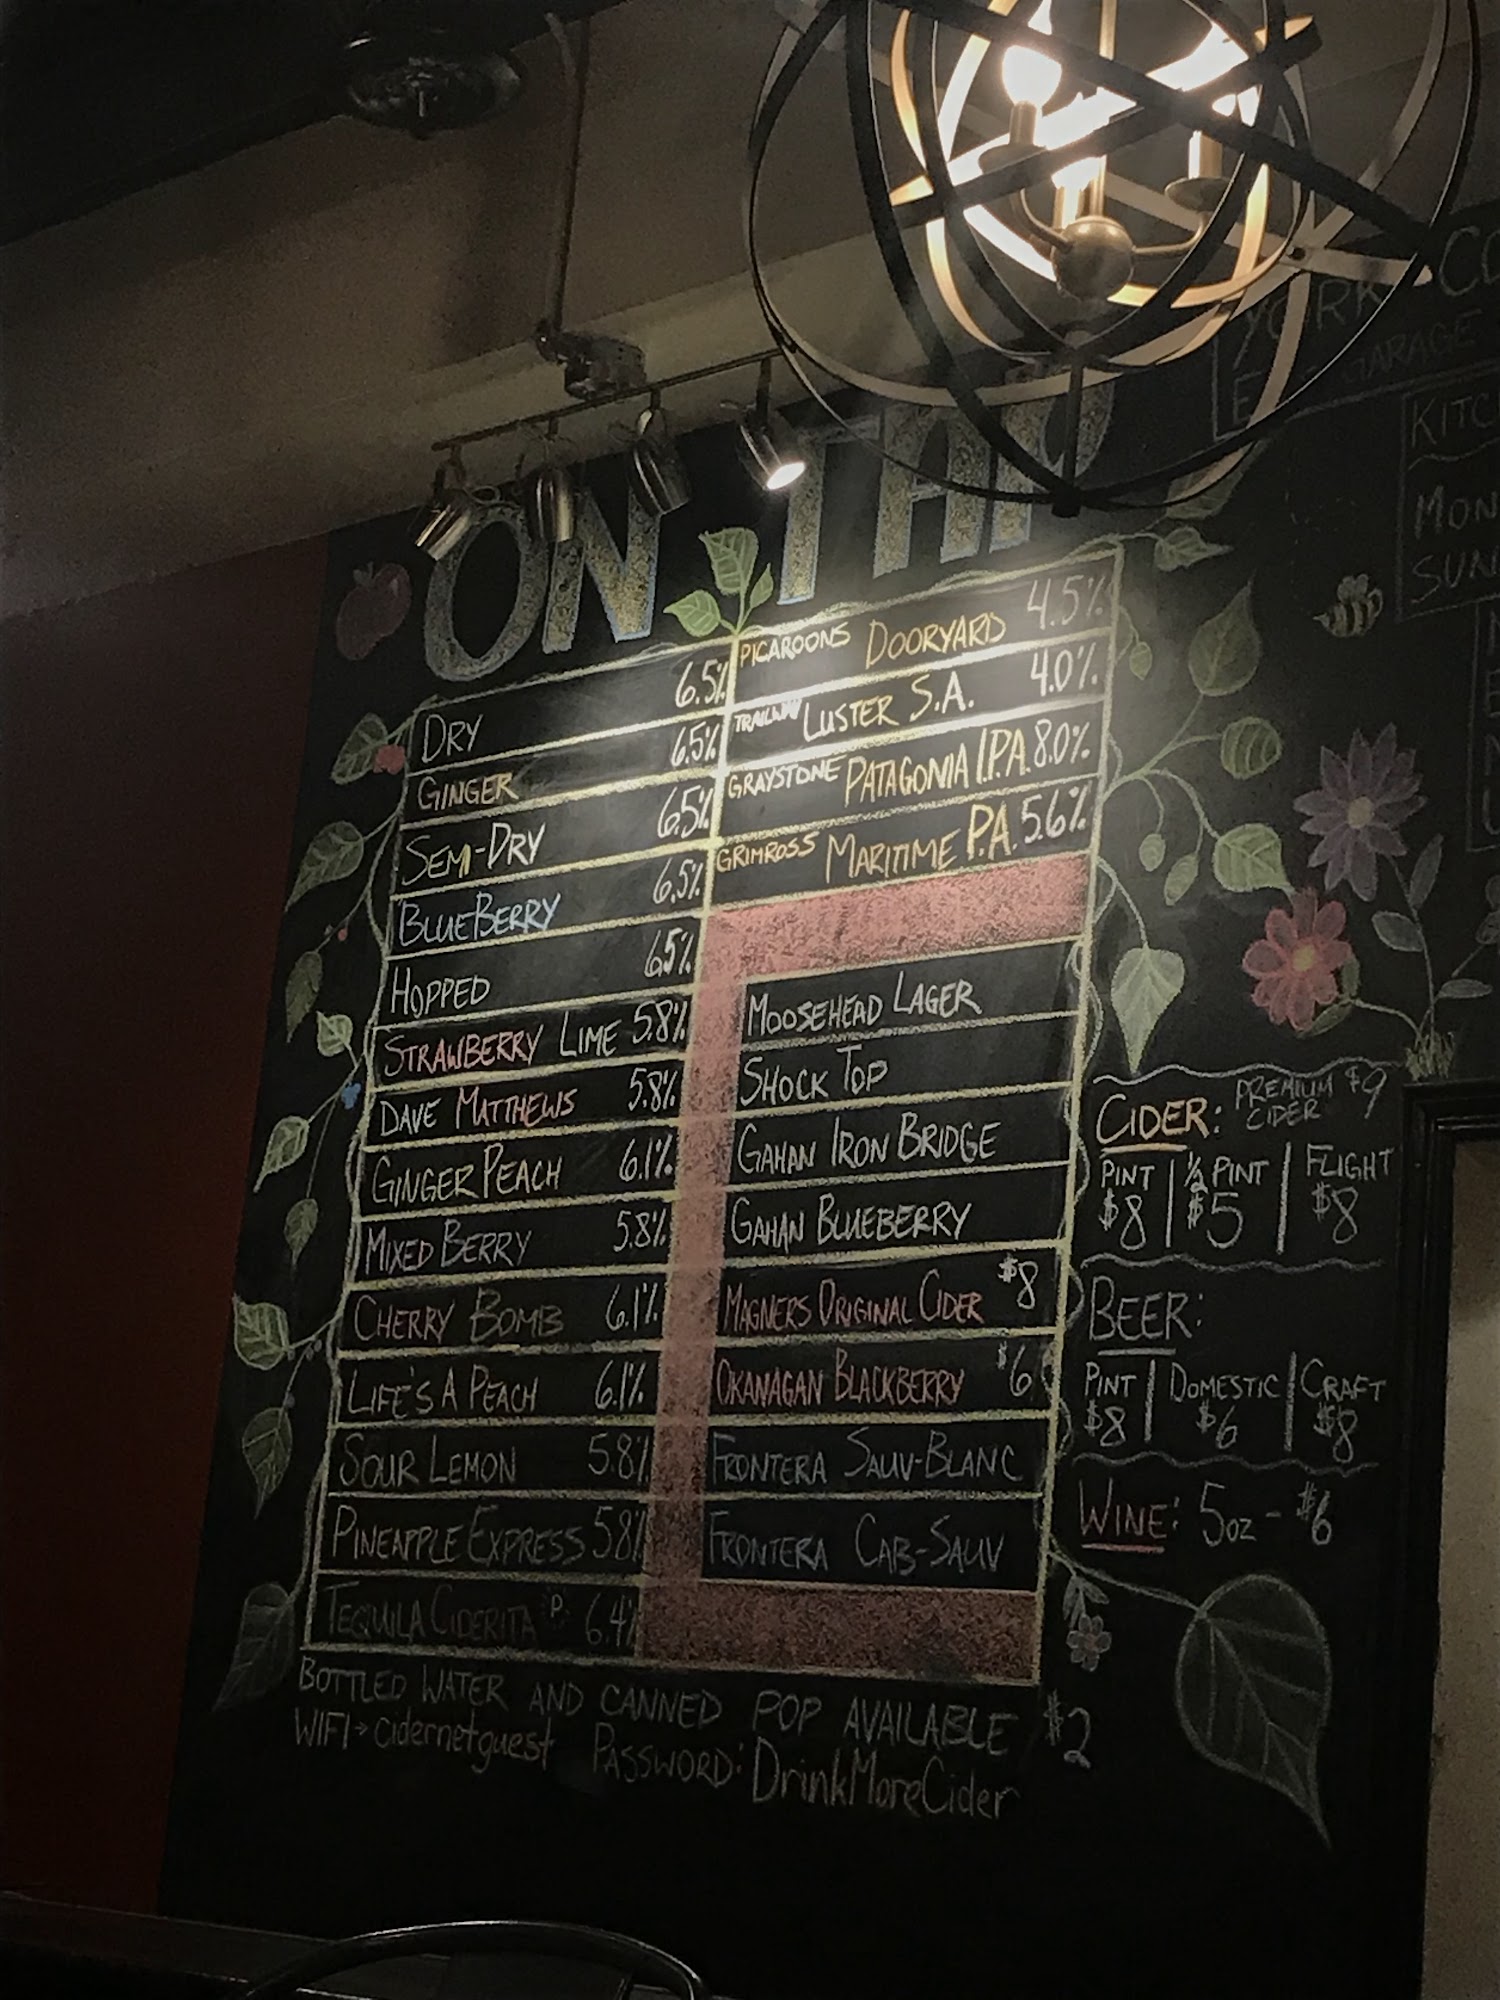 ON TAP
DRY 6.5%
GINGER 6.5%
SEMI-DRY 6.5%
BLUEBERRY 6.5%
HOPPED 6.5%
STRAWBERRY LIME 5.8%
DAVE MATTHEWS 5.8%
GINGER PEACH 6.1%
MIXED BERRY 5.8%
CHERRY BOMB 6.1%
LIFE'S A PEACH 6.1%
SOUR LEMON 5.8%
PINEAPPLE EXPRESS 5.8%
TEQUILA CIDERITA P 6.4%
PICAROONS DOORYARD 4.5%
TRAILWAY LUSTER S.A. 4.0%
GRAYSTONE PATAGONIA I.P.A 8.0%
GRIMROSS MARITIME P.A. 5.6%
MOOSEHEAD LAGER
SHOCK TOP
GAHAN IRON BRIDGE
GAHAN BLUEBERRY
MAGNERS ORIGINAL CIDER $8
OKANAGAN BLACKBERRY $6
FRONTERA SAUV-BLANC
FRONTERA CAB-SAUV
BOTTLED WATER AND CANNED POP AVAILABLE $2
WIFI→cidernetguest PASSWORD: DrinkMoreCider
CIDER: PREMIUM CIDER $9
PINT | ½ PINT | FLIGHT
$8 | $5 | $8
BEER:
PINT | DOMESTIC | CRAFT
$8 | $6 | $8
WINE: 5oz - $6
YORK CO
GARAGE
KITC
MON
SUN